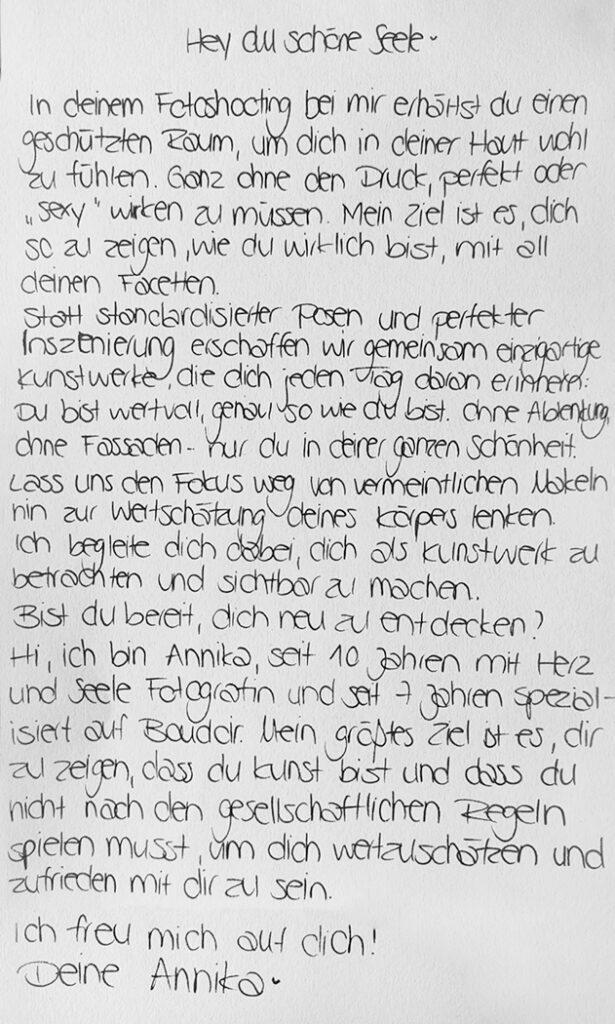 Hey du schöne Seele.
In deinem Fotoshooting bei mir erhältst du einen
geschützten Raum, um dich in deiner Haut wohl
zu fühlen. Ganz ohne den Druck, perfekt oder
„sexy" wirken zu müssen. Mein Ziel ist es, dich
so zu zeigen, wie du wirklich bist, mit all
deinen Facetten.
Statt standardisierter Posen und perfekter
Inszenierung erschaffen wir gemeinsam einzigartige
Kunstwerke, die dich jeden Tag daran erinnern:
Du bist wertvoll, genau so wie du bist. Ohne Ablenkung,
ohne Fassaden - nur du in deiner ganzen Schönheit.
Lass uns den Fokus weg von vermeintlichen Makeln
hin zur Wertschätzung deines Körpers lenken.
Ich begleite dich dabei, dich als Kunstwerk zu
betrachten und sichtbar zu machen.
Bist du bereit, dich neu zu entdecken?
Hi, ich bin Annika, seit 10 Jahren mit Herz
und Seele Fotografin und seit 7 Jahren spezial-
isiert auf Boudoir. Mein größtes Ziel ist es, dir
zu zeigen, dass du Kunst bist und dass du
nicht nach den gesellschaftlichen Regeln
spielen musst, um dich wertzuschätzen und
zufrieden mit dir zu sein.
Ich freu mich auf dich!
Deine Annika.